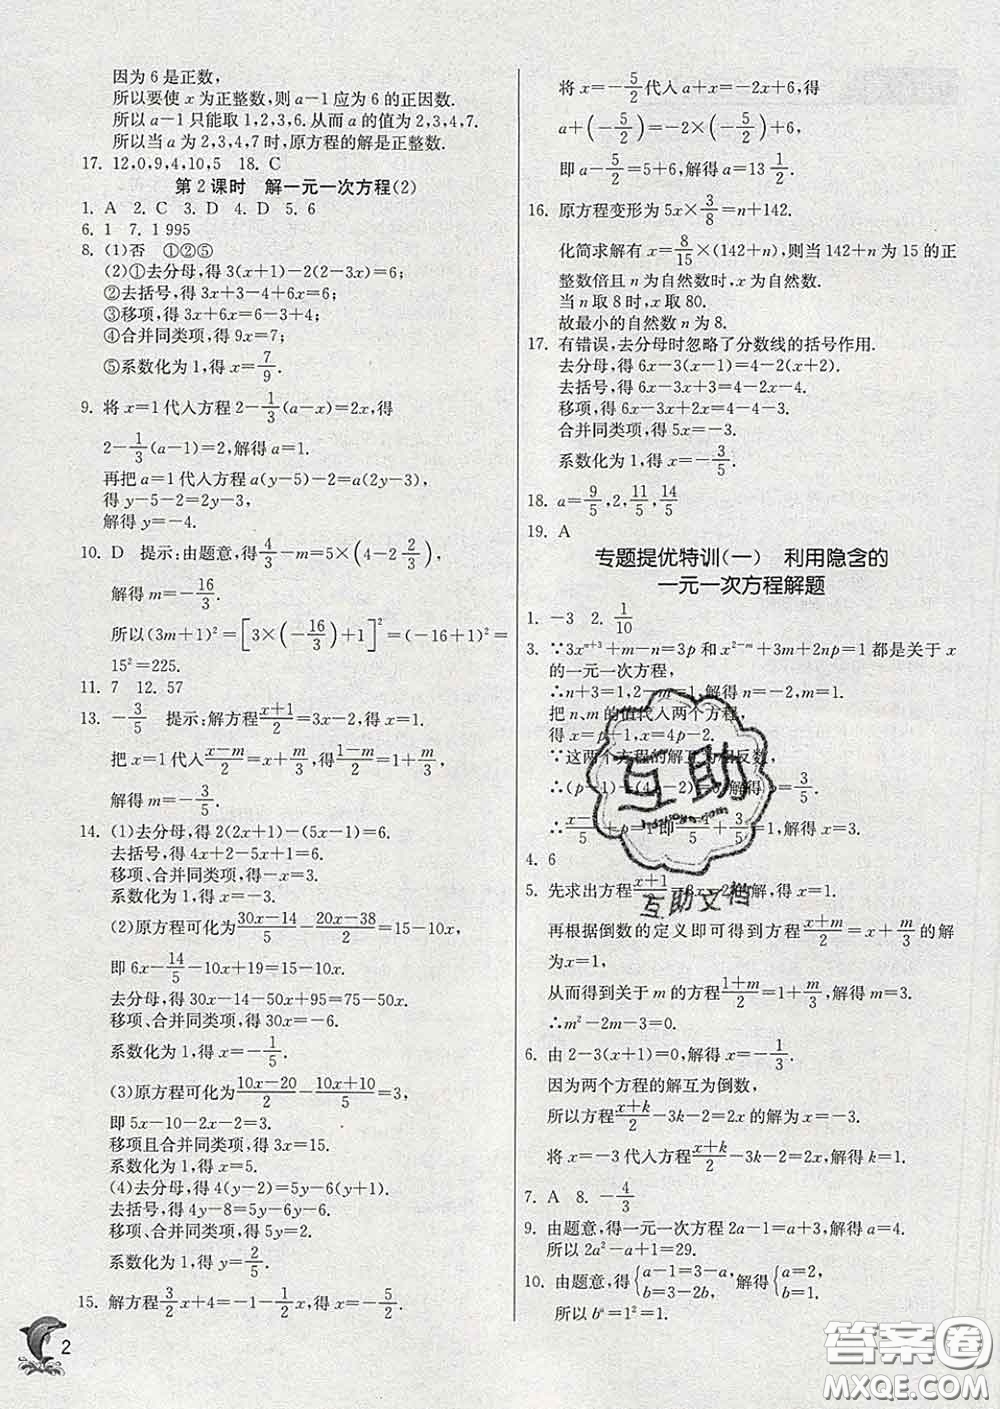 因为6是正数,
所以要使x为正整数,则a-1应为6的正因数.
所以a-1只能取1,2,3,6.从而a的值为2,3,4,7.
所以当a为2,3,4,7时,原方程的解是正整数.
17. 12,0,9,4,10,5 18. C
第2课时 解一元一次方程(2)
1. A 2. C 3. D 4. D 5. 6
6. 1 7. 1 995
8. (1)否 ①②⑤
(2)①去分母,得3(x+1)-2(2-3x)=6;
②去括号,得3x+3-4+6x=6;
③移项,得3x+6x=6-3+4;
④合并同类项,得9x=7;
⑤系数化为1,得x=7/9.
9. 将x=1代入方程2-1/3(a-x)=2x,得
2-1/3(a-1)=2,解得a=1.
再把a=1代入方程a(y-5)-2=a(2y-3),
得y-5-2=2y-3,
解得y=-4.
10. D 提示:由题意,得4/3-m=5×(4-2 2/3),
解得m=-16/3.
所以(3m+1)²=[3×(-16/3)+1]²=(-16+1)²=
15²=225.
11. 7 12. 57
13. -3/5 提示:解方程(x+1)/2=3x-2,得x=1.
把x=1代入(x-m)/2=x+m/3,得(1-m)/2=1+m/3,
解得m=-3/5.
14. (1)去分母,得2(2x+1)-(5x-1)=6.
去括号,得4x+2-5x+1=6.
移项、合并同类项,得-x=3.
系数化为1,得x=-3.
(2)原方程可化为(30x-14)/5-(20x-38)/2=15-10x,
即6x-14/5-10x+19=15-10x.
去分母,得30x-14-50x+95=75-50x.
移项、合并同类项,得30x=-6.
系数化为1,得x=-1/5.
(3)原方程可化为(10x-20)/2-(10x+10)/5=3,
即5x-10-2x-2=3.
移项且合并同类项,得3x=15.
系数化为1,得x=5.
(4)去分母,得4(y-2)=5y-6(y+1).
去括号,得4y-8=5y-6y-6.
移项、合并同类项,得5y=2.
系数化为1,得y=2/5.
15. 解方程3/2x+4=-1-1/2x,得x=-5/2.
2
将x=-5/2代入a+x=-2x+6,得
a+(-5/2)=-2×(-5/2)+6,
即a-5/2=5+6,解得a=13 1/2.
16. 原方程变形为5x×3/8=n+142.
化简求解有x=8/15×(142+n),则当142+n为15的正
整数倍且n为自然数时,x为自然数.
当n取8时,x取80.
故最小的自然数n为8.
17. 有错误,去分母时忽略了分数线的括号作用.
去分母,得6x-3(x-1)=4-2(x+2).
去括号,得6x-3x+3=4-2x-4.
移项,得6x-3x+2x=4-4-3.
合并同类项,得5x=-3.
系数化为1,得x=-3/5.
18. a=9/5,2,11/5,14/5
19. A
专题提优特训(一) 利用隐含的
一元一次方程解题
1. -3 2. 1/10
3. ∵3xⁿ⁺³+m-n=3p和x²⁻ᵐ+3m+2np=1都是关于x
的一元一次方程,
∴n+3=1,2-m=1,解得n=-2,m=1.
把n、m的值代入两个方程,
得x=p-1,x=4p-2.
∵这两个方程的解互为相反数,
∴(p-1)+(4p-2)=0,解得p=3/5.
∴(x-3)/5+p=1,即(x-3)/5+3/5=1,解得x=3.
互助
互助文档
4. 6
5. 先求出方程(x+1)/2=3x-2的解,得x=1.
再根据倒数的定义即可得到方程(x+m)/2=x+m/3的解
为x=1,
从而得到关于m的方程(1+m)/2=1+m/3,解得m=3.
∴m²-2m-3=0.
6. 由2-3(x+1)=0,解得x=-1/3.
因为两个方程的解互为倒数,
所以方程(x+k)/2-3k-2=2x的解为x=-3.
将x=-3代入方程(x+k)/2-3k-2=2x,解得k=1.
7. A 8. -4/3
9. 由题意,得一元一次方程2a-1=a+3,解得a=4.
所以2a²-a+1=29.
10. 由题意,得{a-1=3-a, b=3-2b, 解得{a=2, b=1.
所以bᵃ=1²=1.
答案圈
MXQE.COM